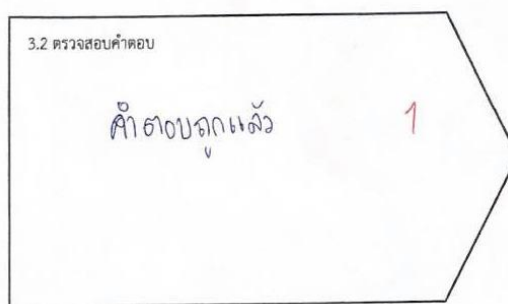 3.2 ตรวจสอบคำตอบ
คำตอบถูกแล้ว 1